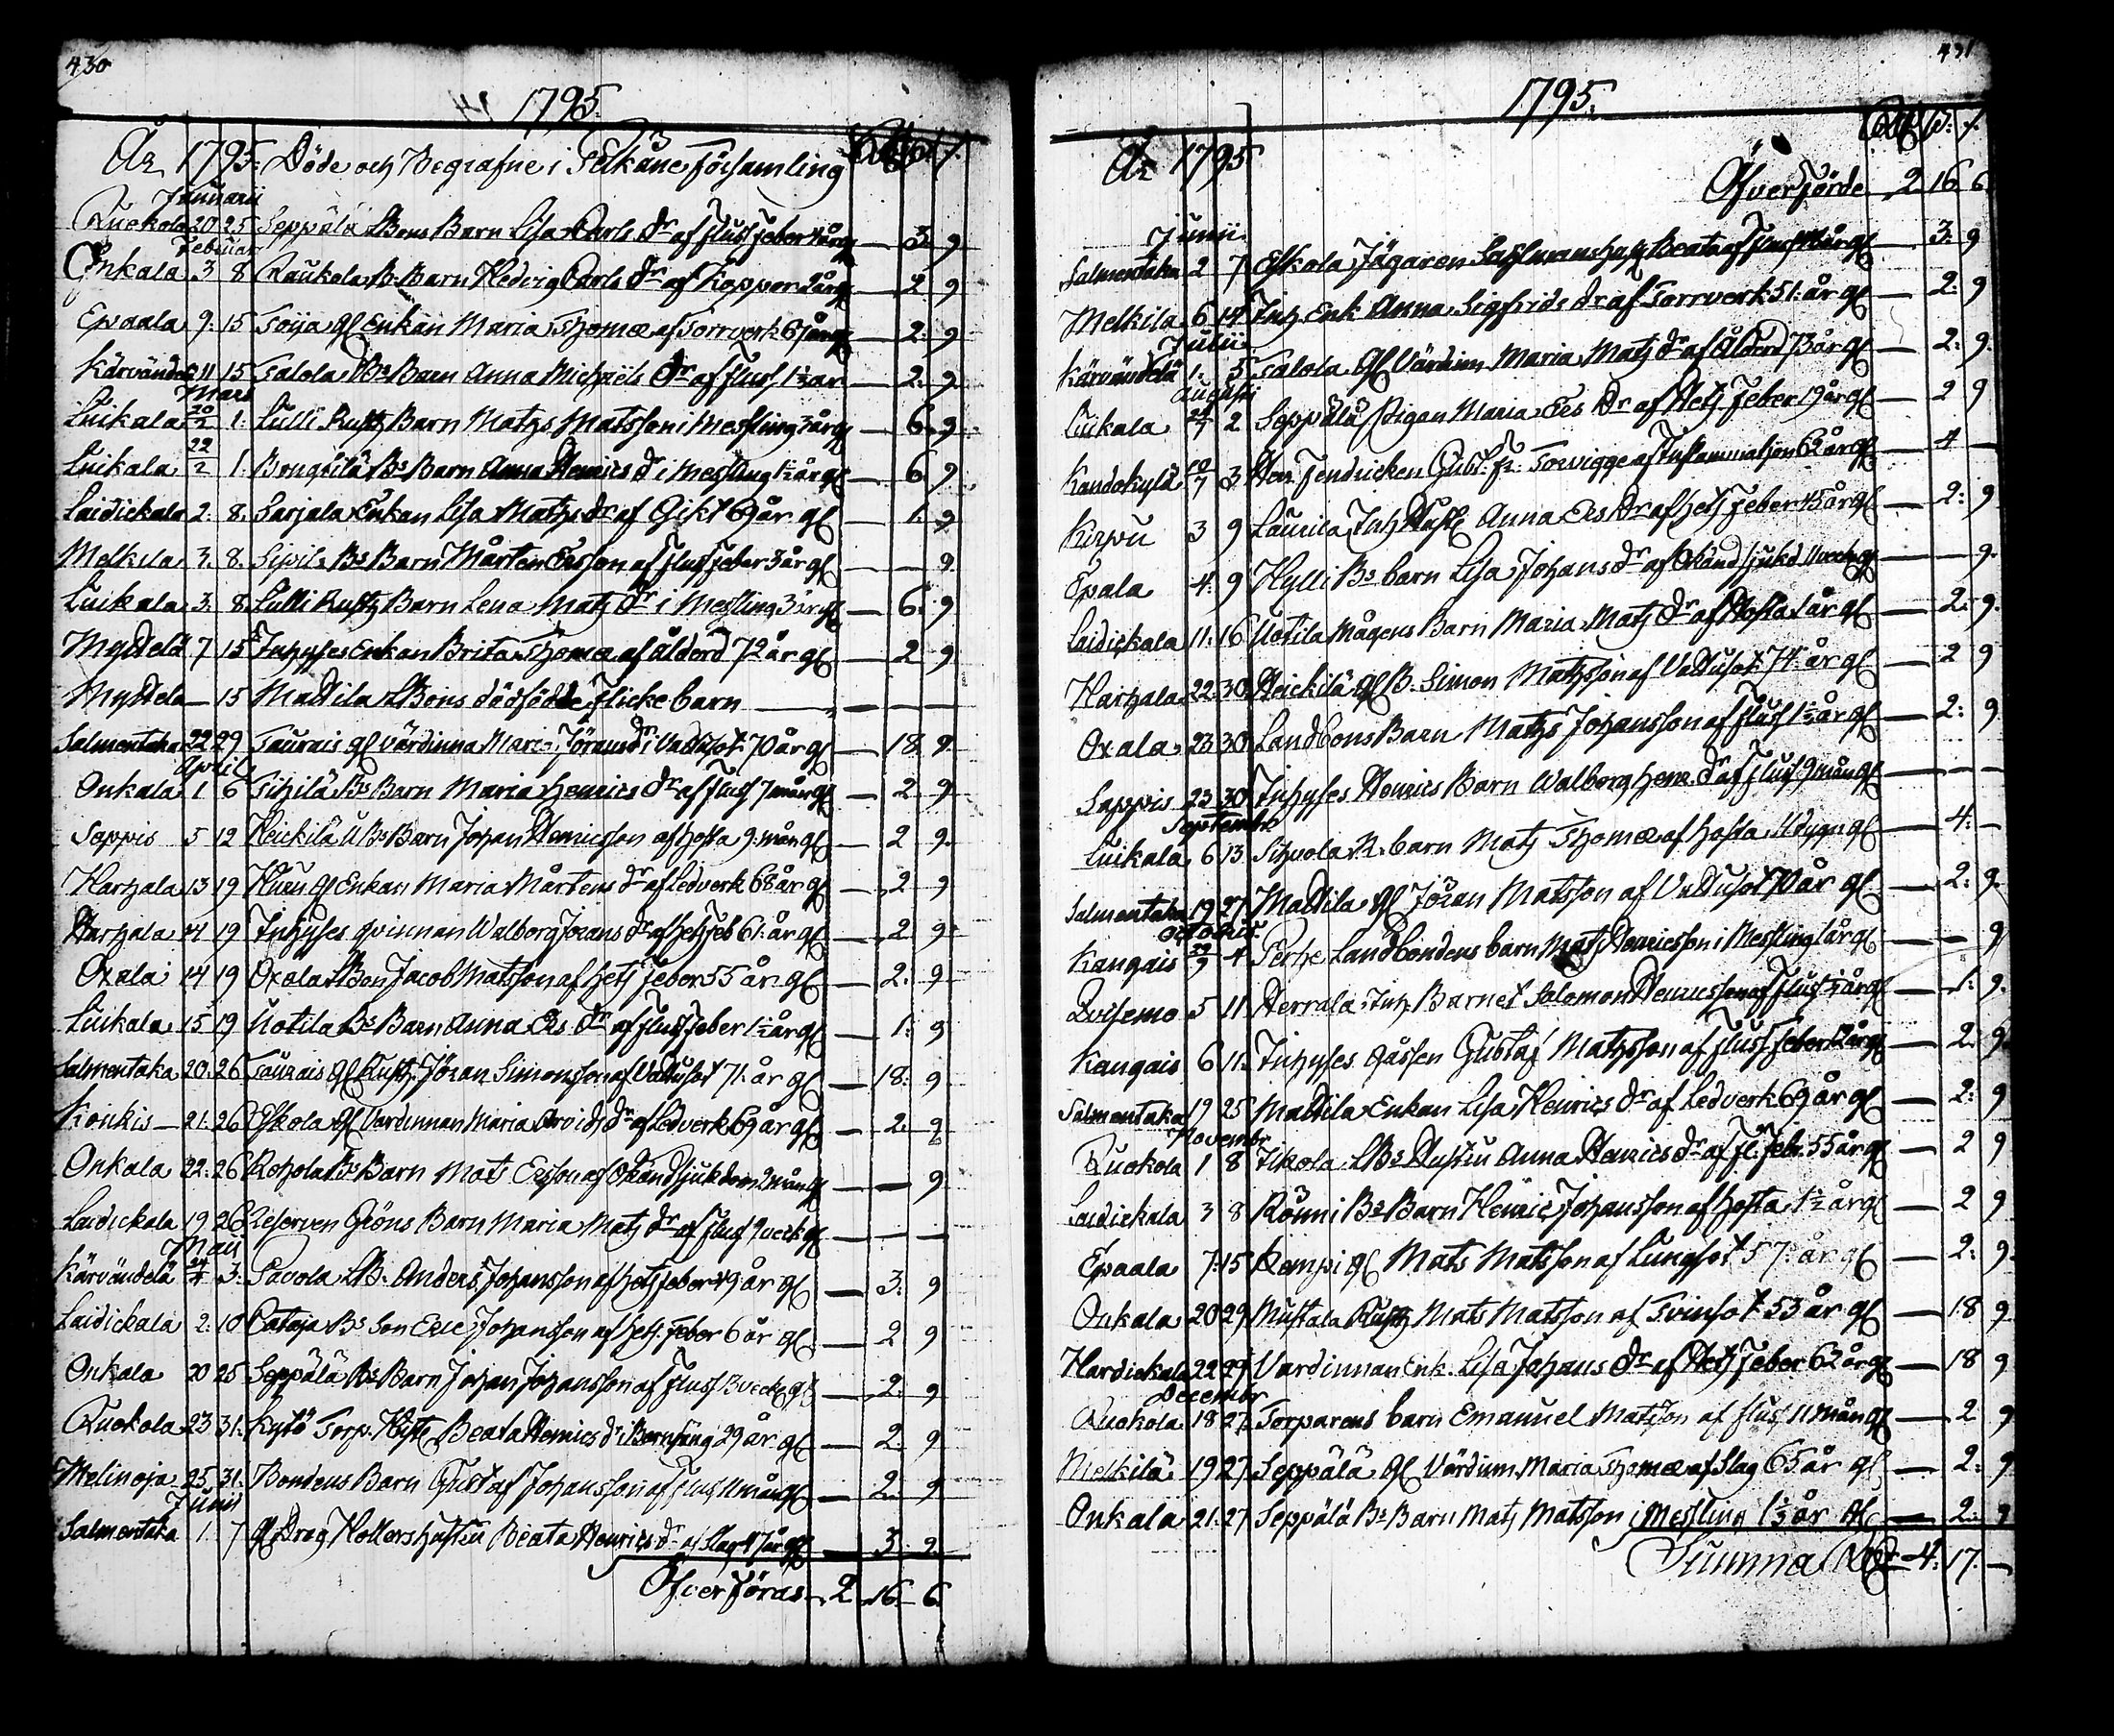 430
1795.
År 1795. Döde och Begrafne i Pelkäne församling
Januarii
Ruokola 20 25 Seppälä LBons Barn Lisa Carls Dr af flussfeber år gl — 3. 9
Februar
Onkala 3 8 Raukola B. Barn Hedvig Carls Dr af Koppor 2 år gl — 2 9
Epaala 9. 15 Toija gl Enkan Maria Thomæ af Torrverk år gl — 2. 9
Kärvändelä 11 15 Talola Bs Barn Anna Michaëls Dr af fluss 1½ år — 2. 9
Mars
Luikala 20/2 1. Lulli Rusth Barn Matzs Matsson i Messling 3 år gl — 6. 9
Luikala 22/2 1. Bs Barn Anna Henrics dr i Messling 1½ år gl — 6 9
Laidickala 2. 8. Sarjala Enkan Lisa Matzs dr af Gikt 69 år gl — 1. 9
Melkila 3. 8. Sipilä Bs Barn Mårten Ersson af flussfeber 3 år gl — — 9.
Luikala 3. 8 Lulli Rusth Barn Lena Matz Dr i Messling 3 år gl — 6. 9
Myttelä 7 15 Inhyses Enkan Brita Thomæ af ålderd 72 år gl — 2 9
Myttelä — 15 Mattila LBons dödfödde flicke barn — — —
Salmentaka 22 29 Taurais gl värdinna Maria Jörans dr i Vattusot 70 år gl — 18. 9.
April
Onkala 1 6 Tihilä Bs Barn Maria Henrics Dr af fluss 7 mån gl — 2 9
Sappis 5 12 Heickilä UBs Barn Johan Henricsson af hosta 9. mån gl — 2 9.
Harhala 13 19 gl Enkan Maria Mårtens dr af Ledverk 68 år gl — 2 9
Harhala 14 19 Inhyses qvinnan Walborg Jörans dr af hetsfeb 61. år gl — 2 9.
Oxala 14 19 Oxala LBon Jacob Matsson af hets feber 55 år gl — 2. 9
Luikala 15 19 Uotila Bs Barn Anna Ers Dr af flussfeber 1½ år gl — 1. 9
Salmentaka 20. 26 Taurais gl Rusth. Jöran Simonsson af Vattusot 71. år gl — 18. 9
Konkis — 21. 26 Eskola gl Värdinnan Maria Arvids dr af Ledverk 69 år gl — 2. 9
Onkala 22. 26 Rohola Bs Barn Mats Ersson af Okänd sjukdom 2 mån gl — — 9
Laidickala 19 26 Reserven Gröns Barn Maria Matz dr af fluss 9 veck gl — — —
Maii
Kärvändelä 24/4 3. Pavola LB. Anders Johansson af hets feber 49 år gl — 3. 9
Laidickala 2. 10 Cataja Bs Son Eric Johansson af hets feber 6 år gl — 2 9
Onkala 20 25 Seppälä Bs Barn Johan Johansson af fluss 8 veck gl — 2. 9
Ruokola 23 31. Kytö Torp. Hustr Beata Henrics dr i Barnsäng 29 år gl — 2. 9
Melinoja 25 31. Bondens Barn Gustaf Johansson af fluss 11 mån gl — 2. 9
Junii
Salmentaka 1. 7 gl Drag Hollers hustru Beata Henrics dr af Slag 47 år gl — 3. 9.
Öfverföras — 2 16. 6.
431
1795.
År 1795
Öfverförde 2 16 6.
Junii
Salmentaka 2 7 Eskola Jägaren hust Beata af fluss år gl — 3. 9
Melkila 6 14 Inh Enk Anna Sigfrids dr af Torrverk 51. år gl — 2. 9
Julii
Kärvändelä 1. 5 Talola gl Värdinn Maria Matz dr af Ålderd 73 år gl — 2. 9.
Augusti
Luikala 2 Seppälä Pigan Maria Ers Dr af Hets feber 19 år gl — 2 9
3 Herr Fendricken Gust. Fr. Torwigge af Inflammation 62 år gl — 4 —
Kirpu 3 9 Laurila Inh Hust Anna Ers Dr af hets feber 45 år gl — 2. 9
Epala 4. 9 Hylli Bs barn Lisa Johans dr af Okänd sjukd veck gl — — 9.
Laidickala 11. 16 Uotila Mågens Barn Maria Matz Dr af Hosta 1 år gl — 2. 9.
Harhala 22. 30. Heickilä gl B. Simon Matzsson af Vattusot. 74. år gl — 2 9
Oxala 23 30. Landbons Barn Matzs Johansson af fluss 1½ år gl — 2. 9
Sappis 23 30. Inhyses Henrics Barn Walborg Henr. dr af fluss 9 mån gl — — —
September
Luikala 6 13. barn Matz Thomæ af hosta gl — 4. —
Salmentaka 19 27. Mattila gl Jöran Matsson af Vattusot 70 år gl — 2. 9.
October
Kangais 29/9 4 Perhe Landbondens barn Mats Henricsson i Messling 1 år gl — — 9
Qvisemo 5 11. Herrala Inh. Barnet Salomon Henricsson af fluss år gl — 1. 9.
Kangais 6 11. Inhyses Gåssen Gustaf Matzsson af fluss feber 12 år gl — 2. 9
Salmentaka 19 25 Mattila Enkan Lisa Henrics dr af Ledverk 69 år gl — 2. 9
Novembr
Ruokola 1 8 Jikola LBs Hustru Anna Henrics dr af fl. febr. 55 år gl — 2 9
Laidickala 3 8 Rönni Bs Barn Henric Johansson af hosta 1½ år gl — 2 9
Epaala 7. 15 Kempi gl Mats Matsson af Lungsot 57. år gl — 2. 9.
Onkala 20 29 Mustala Rusth Mats Matsson af Tvinsot 53 år gl — 18 9
Hardickala 22 29 Värdinnan Enk. Lisa Johans dr af Hets feber 62 år gl — 18 9
Decembr
Ruokola 18 27. Torparens barn Emanuel Matsson af fluss 11 mån gl — 2 9
Melkilä 19 27 Seppälä gl Värdinn. Maria Thomæ af Slag 65 år gl — 2. 9
Onkala 21. 27 Seppälä Bs Barn Matz Matsson i Messling 1½ år gl — 2. 9
Summa 4. 17. —